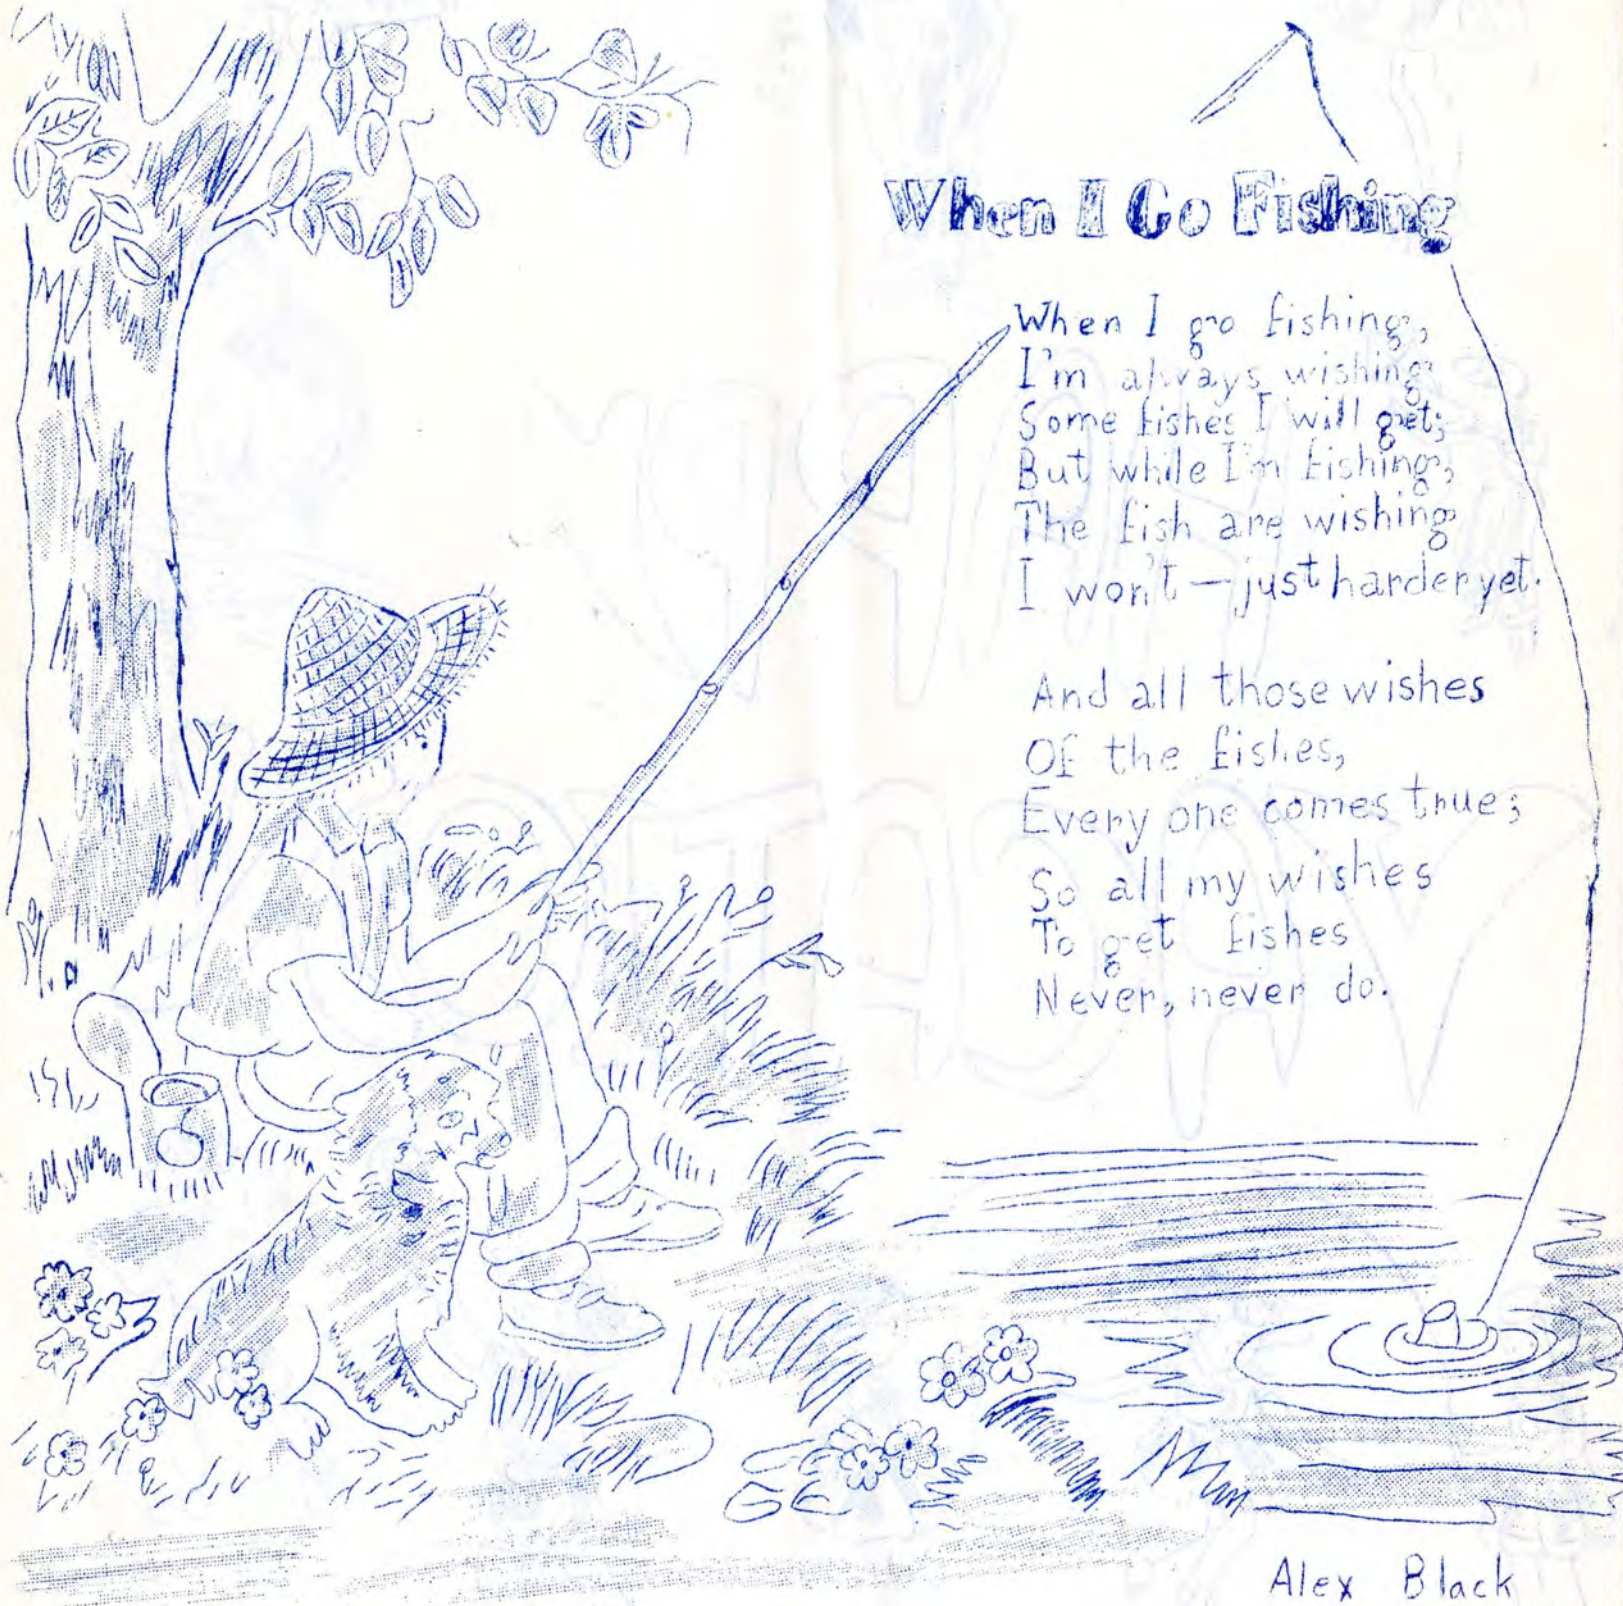 When I Go Fishing
When I go fishing,
I'm always wishing
Some fishes I will get;
But while I'm fishing,
The fish are wishing
I won't — just harder yet.
And all those wishes
Of the fishes,
Every one comes true;
So all my wishes
To get fishes
Never, never do.
Alex Black